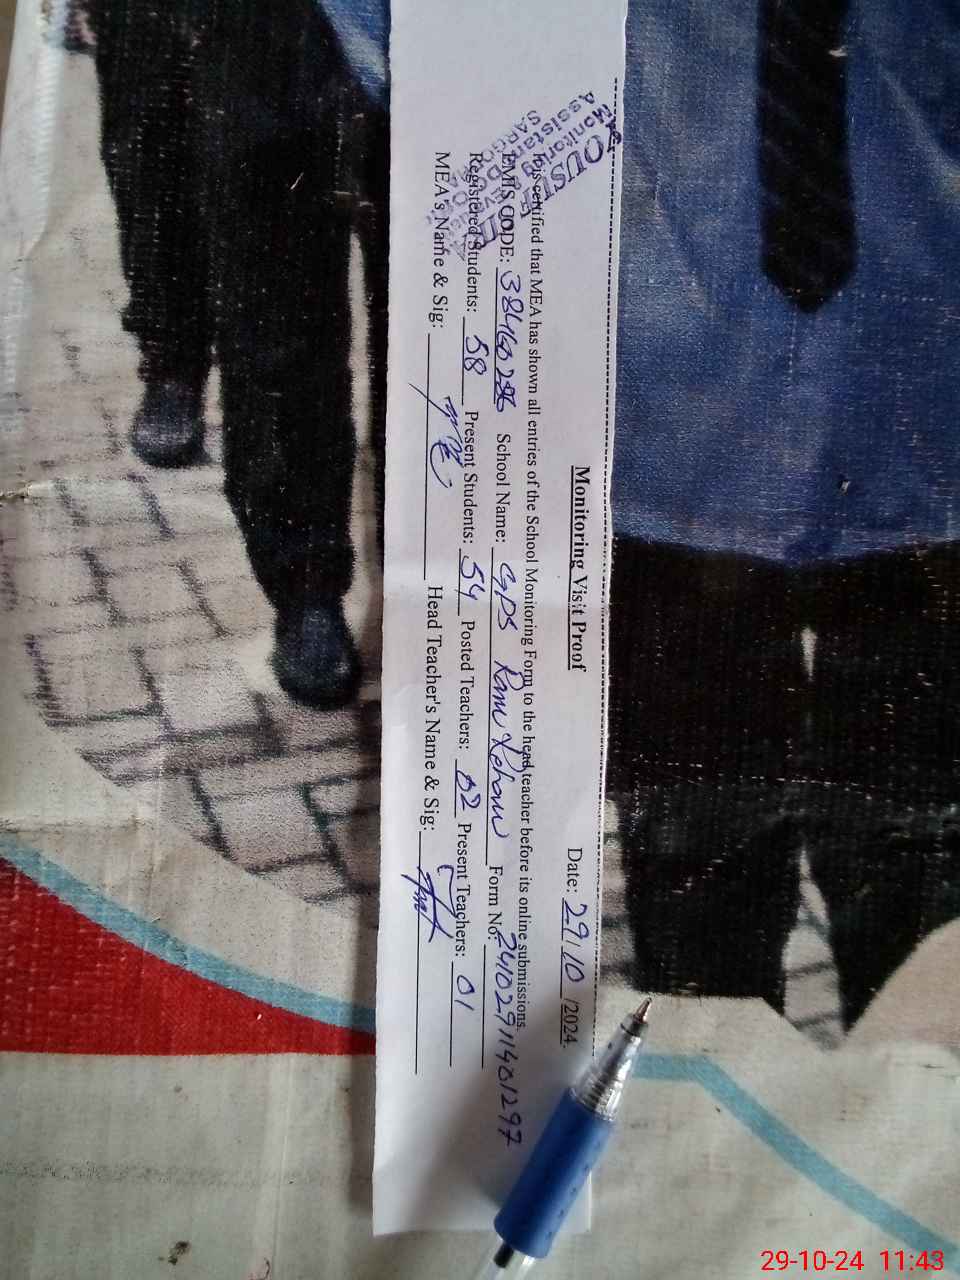 Monitoring Visit Proof
Date: 29/10 /2024.
It is certified that MEA has shown all entries of the School Monitoring Form to the head teacher before its online submissions.
EMIS CODE: 38460286 School Name: GPS Form No: 24102911401297
Registered Students: 58 Present Students: 54 Posted Teachers: 02 Present Teachers: 01
MEA's Name & Sig: Head Teacher's Name & Sig:
Monitoring
Assistant
29-10-24 11:43